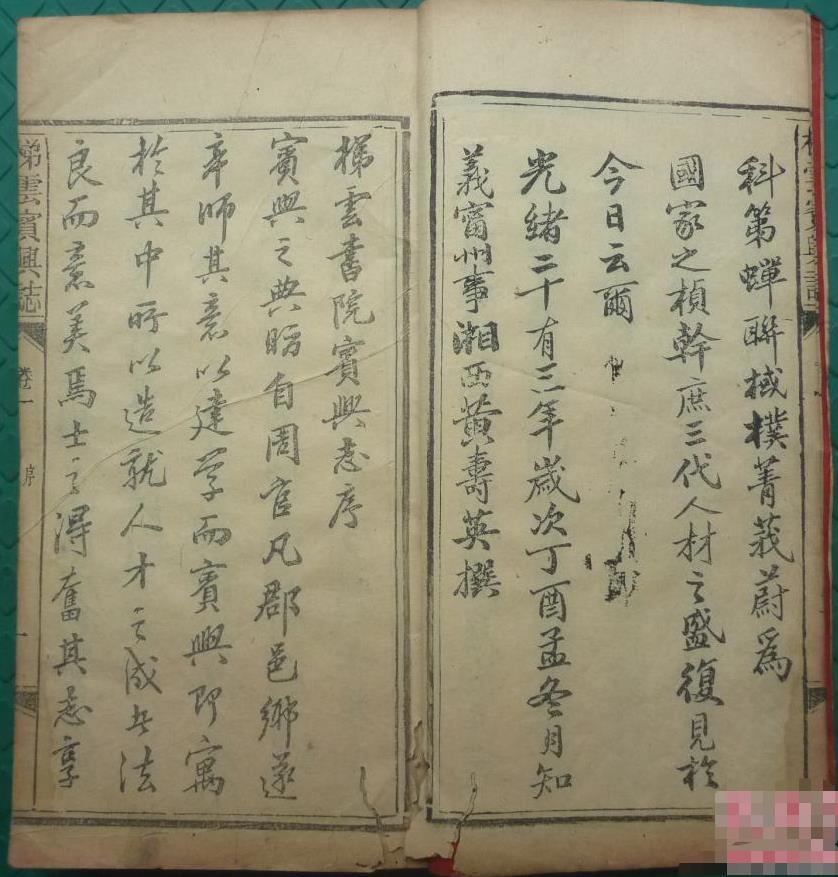 科第蟬聯棫樸菁莪蔚爲
國家之楨幹庶三代人材之盛復見於
今日云爾
光緒二十有三年歲次丁酉孟冬月知
義甯州事湘西黃壽英撰
梯雲書院賓興志序
賓興之典昉自周官凡郡邑鄉遂
率師其意以建學而賓興即寓
於其中所以造就人才之成其法
良而意美焉士之得奮其志享
梯雲賓興誌
卷一
序
一